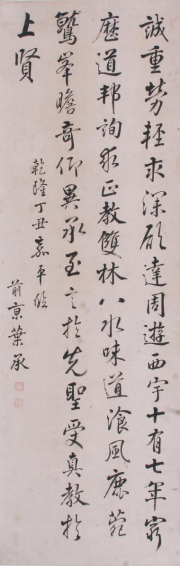 誠重勞輕求深願達周遊西宇十有七年窮
歷道邦詢求正教雙林八水味道湌風鹿菀
鷲峯瞻奇仰異承至言於先聖受真教於
上賢
乾隆丁丑嘉平
前京葉承